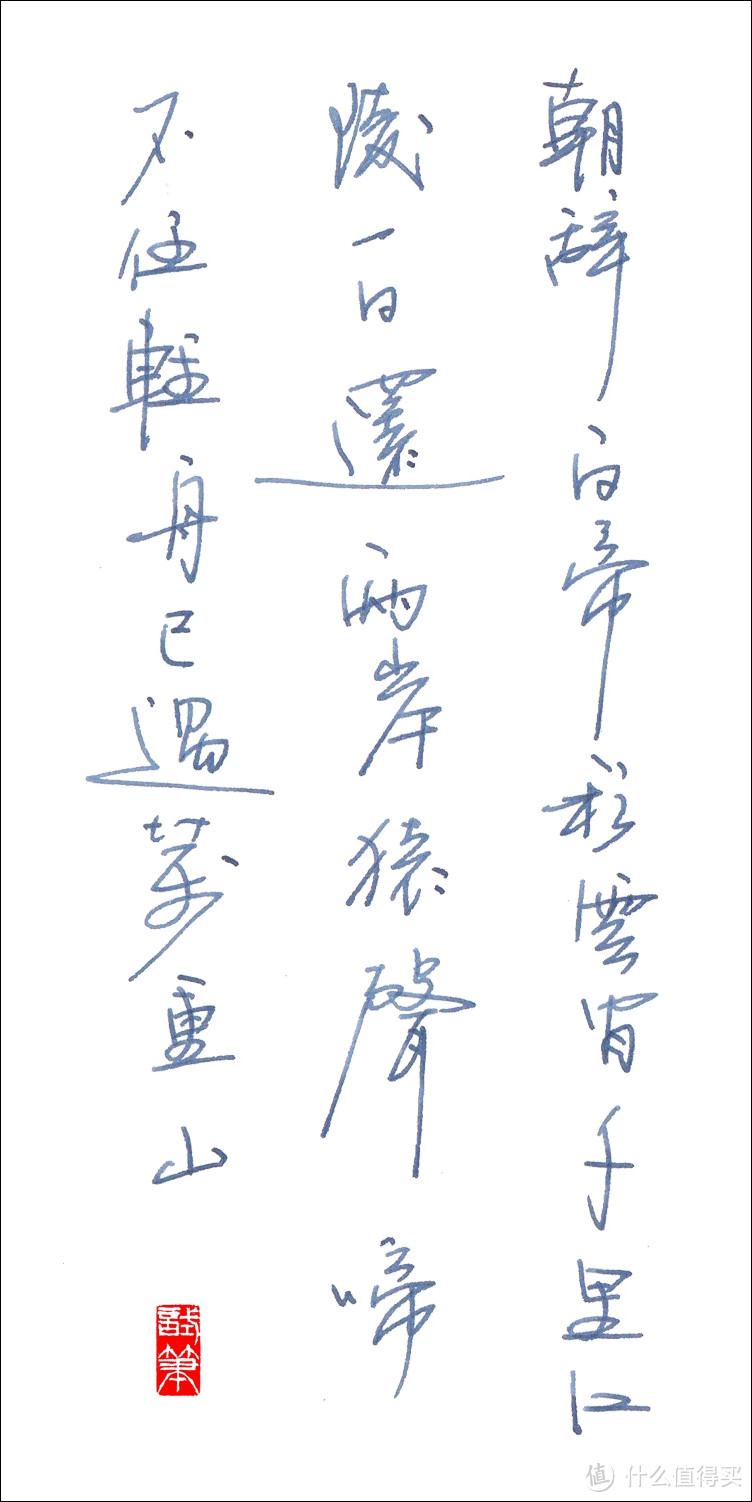 朝辭白帝彩雲間千里江
陵一日還兩岸猿聲啼
不住輕舟已過萬重山
試筆
值 什么值得买